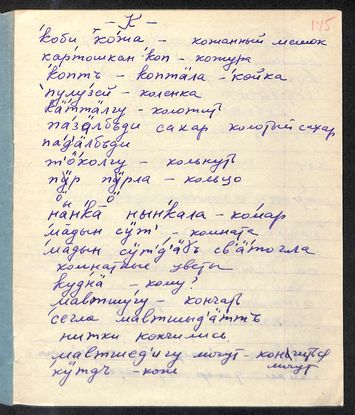 - К -
145
коби ко́жа - кожанный мешок
картошкан коп - кожура
коптъ - копта̄ла - койка
пулу́зей - коленка
кӓттӓлгу - колотит
па́зӓлбъди сахар колотый сахар
па́зӓлбъди
то́колгу - кольнуть
пӱр пӱрла - кольцо
нӓнка̄ нынкала - комар
ма̄дын сӱт' - комната
ма̄дын сӱт'д'ӓӷъ св'ӓтогла
комнатные цветы
куднӓ - кому?
ма̄втшугу - кончать
сегла ма̄втшыд'ӓттъ
нитки кончились
ма̄втшед'игу могут - кончиться
могут
кӱтдъ - конь